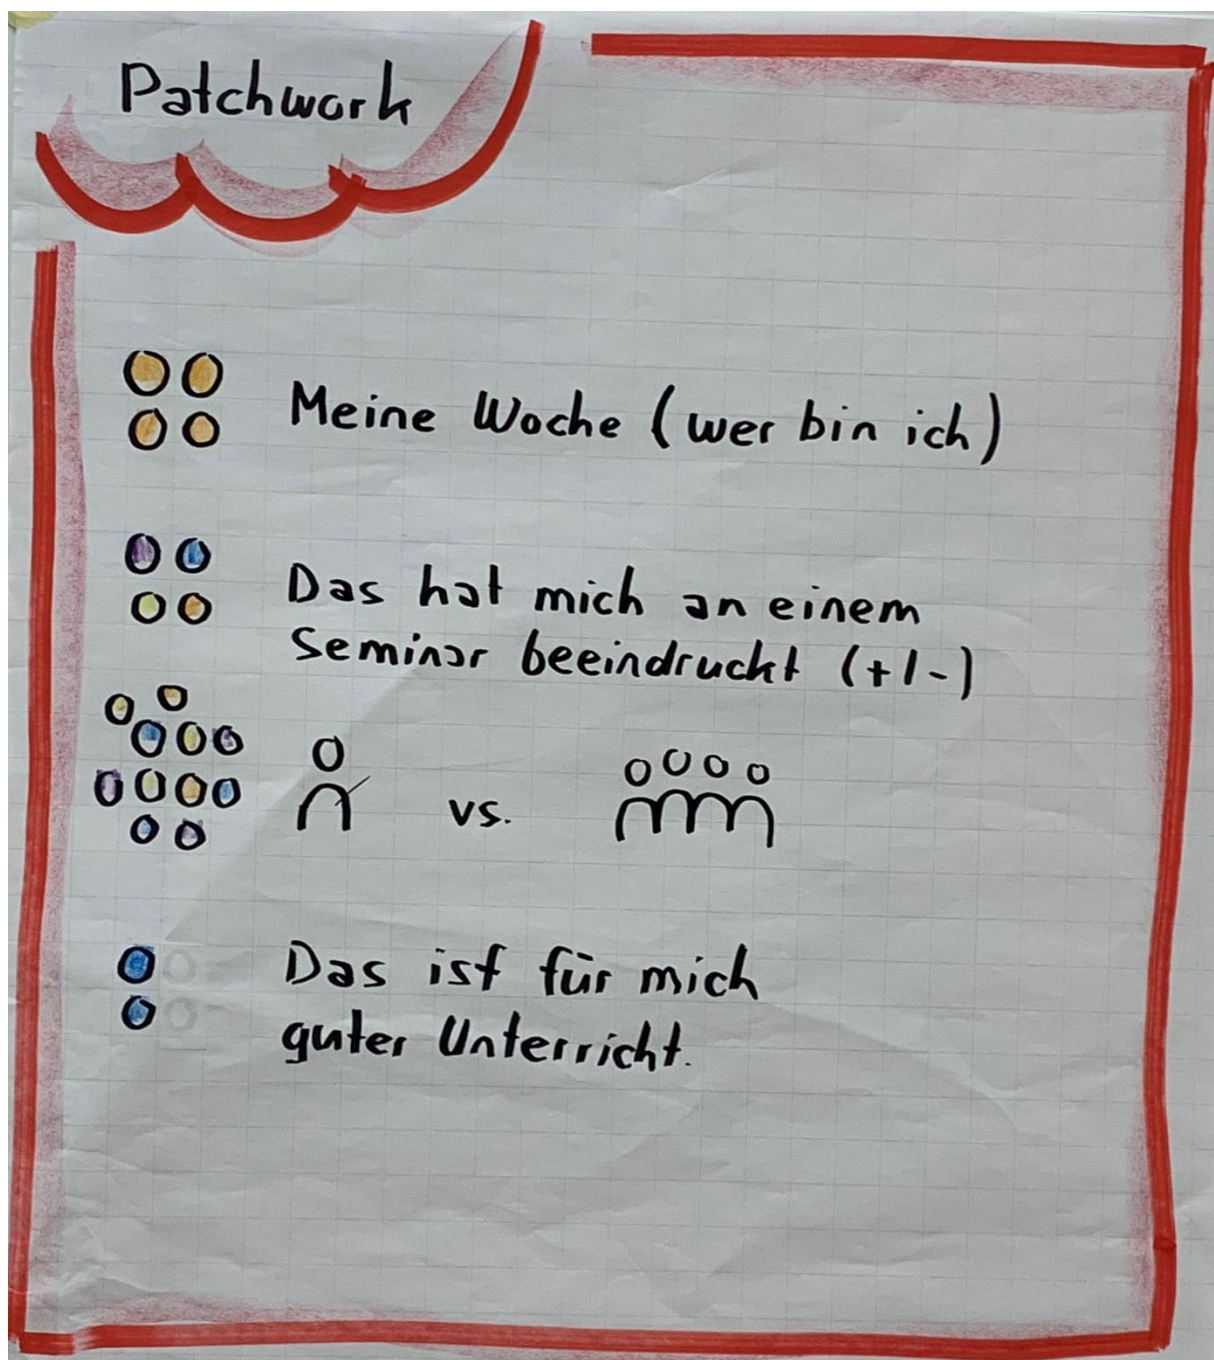 Patchwork
Meine Woche (wer bin ich)
Das hat mich an einem
Seminar beeindruckt (+/-)
vs.
Das ist für mich
guter Unterricht.